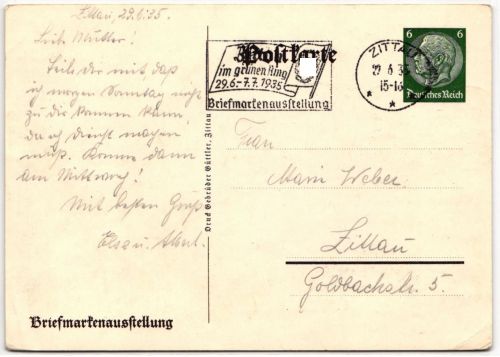 Zittau, 29.6.35.
Liebe Mutter!
Teile dir mit daß
ich morgen Sonntag nicht
zu dir kommen kann,
da ich Dienst machen
muß. Komme dann
am Mittwoch!
Mit besten Gruß
Elsa u. Albert.
Briefmarkenausstellung
Druck Gebrüder Güttler, Zittau
Postkarte
im grünen Ring
29.6.-7.7.1935
Briefmarkenausstellung
ZITTAU
29.6.35
15-16
6 6
Deutsches Reich
Frau
Marie Weber
Zittau
Goldbachstr. 5.